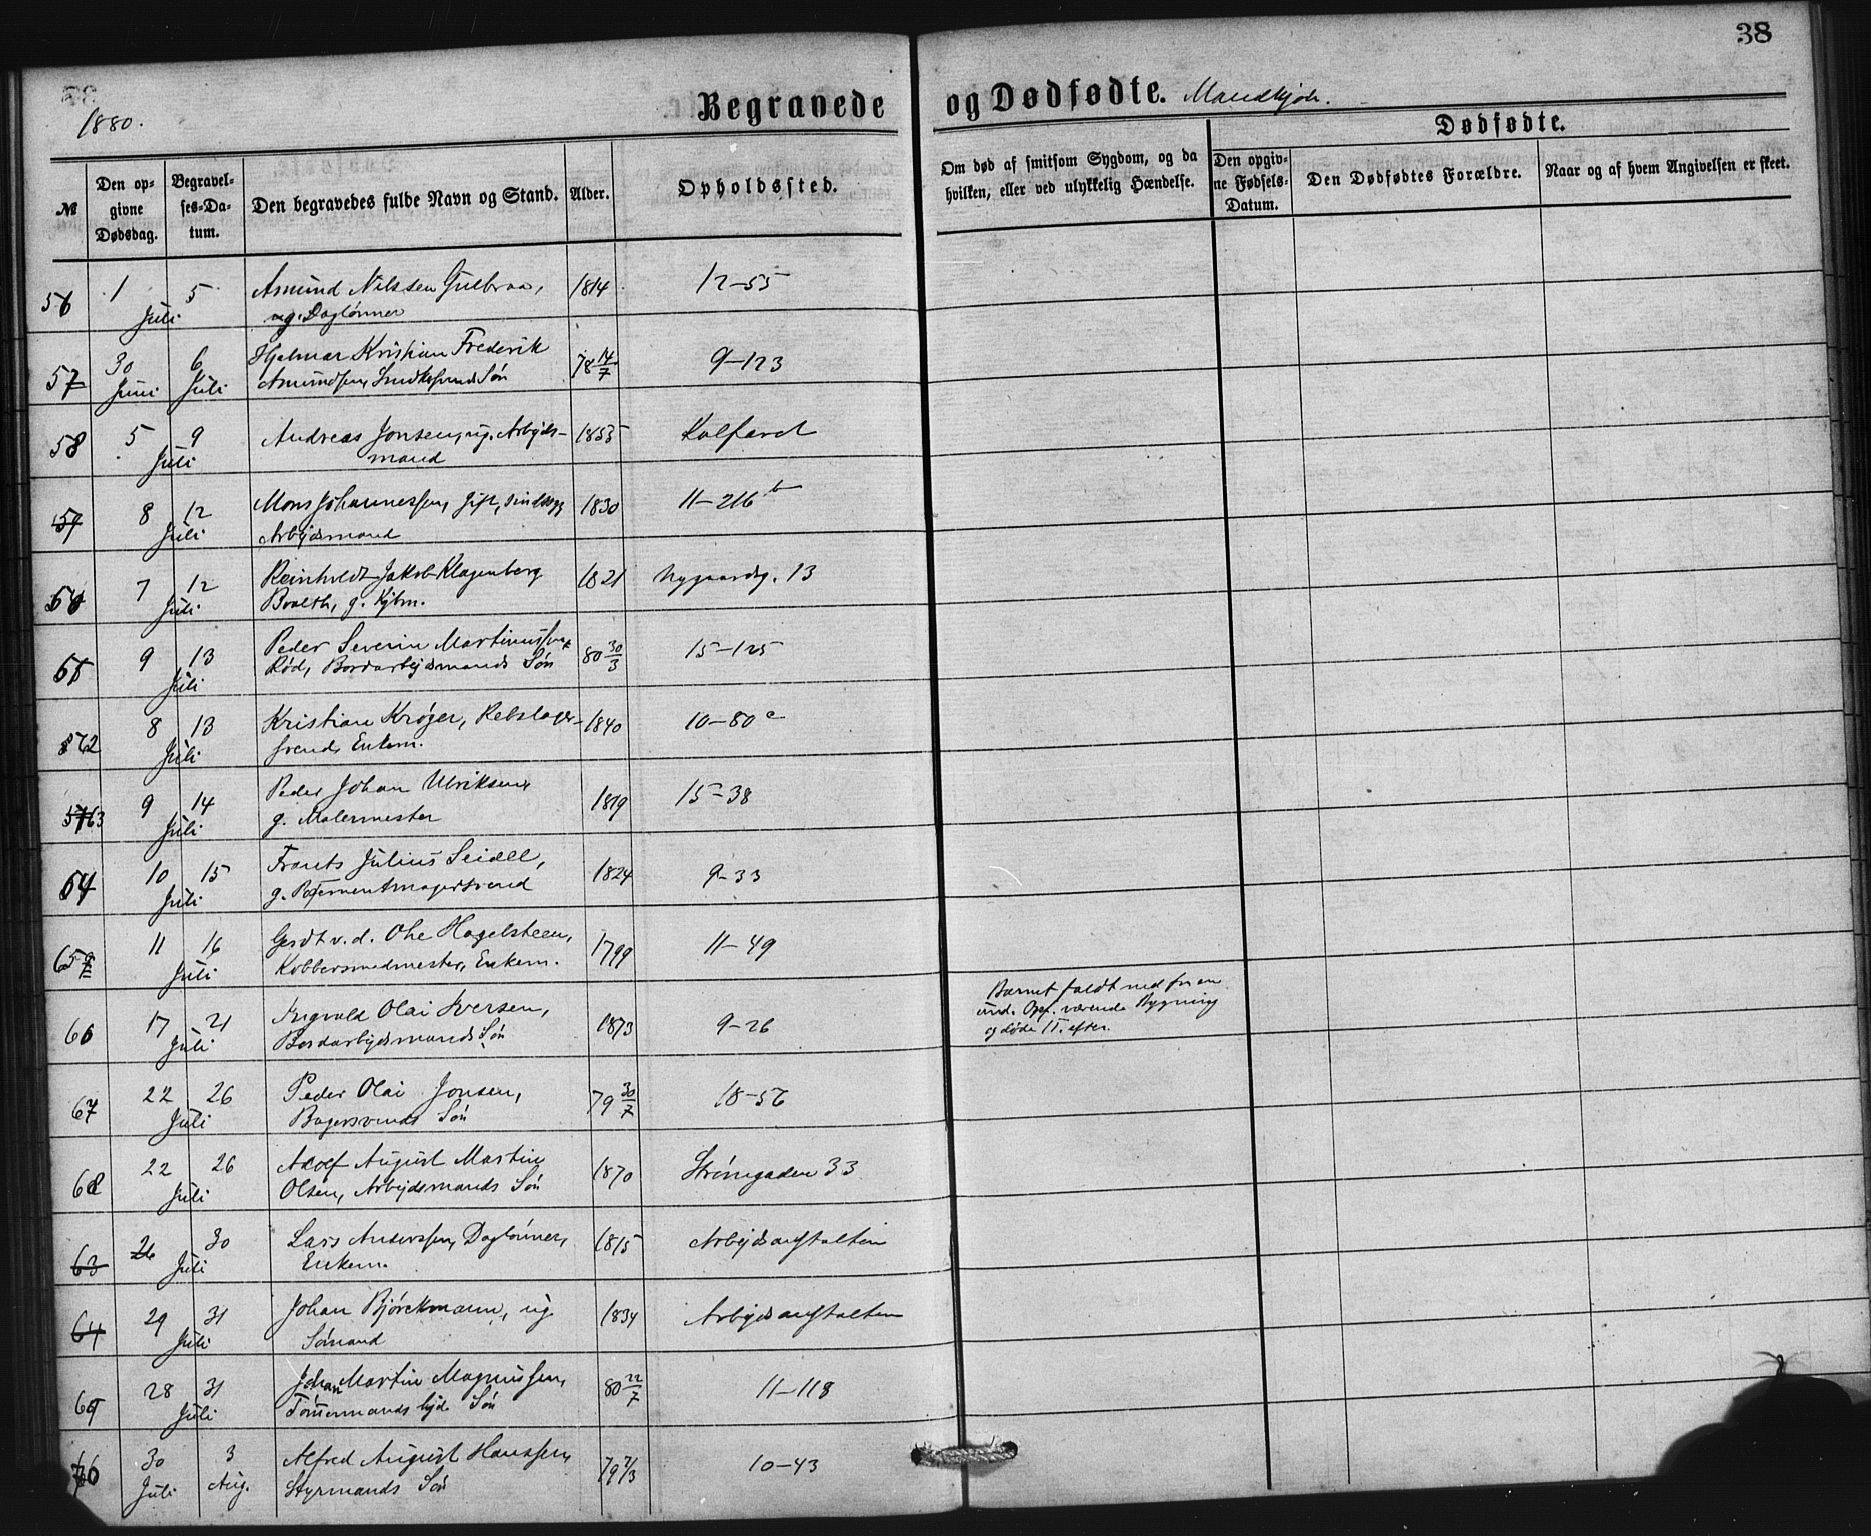 38
1880.
Begravede og Dødfødte. Mandkjøn.
Dødfødte.
№
Den opgivne Dødsdag.
Begravelses-Datum.
Den begravedes fulde Navn og Stand.
Alder.
Opholdssted.
Om død af smitsom Sygdom, og da hvilken, eller ved ulykkelig Hændelse.
Den opgivne Fødsels-Datum.
Den Dødfødtes Forældre.
Naar og af hvem Angivelsen er skeet.
56 1 5 Asmund Nilssen Gulbraa, 1814 12-55
Juli ug. Daglønner
57 30 6 Hjalmar Kristian Frederik 78 14/7 9-123
Juni Juli Amundsen, Søn
58 5 9 Andreas Jonsen, ug. Arbejds- 1855 Kalfaret
Juli mand
8 12 Mons Johannessen, gift, 1830 11-216 b
Juli Arbejdsmand
7 12 Reinholdt Jakob Klagenberg 1821 Nygaardsg. 13
Juli g. Kjbm.
61 9 13 Peder Severin Martinussen 80 30/3 15-125
Juli Rød, Bordarbejdsmands Søn
62 8 13 Kristian Krøger, Rebslager- 1840 10-80 c
Juli svend, Enkem.
63 9 14 Peder Johan Ulriksen, 1819 15-38
Juli g. Malermester
64 10 15 Frants Julius Seidel, 1824 9-33
Juli g. Possementmagersvend
65 11 16 Gerdt v. d. Ohe Hagelsteen, 1799 11-49
Juli Kobbersmedmester, Enkem.
66 17 21 Ingvald Olai Iversen, 1873 9-26 Barnet faldt ned fra en
Juli Bordarbejdsmands Søn und. Opf. værende Bygning
og døde efter.
67 22 26 Peder Olai Jonsen, 79 30/7 18-56
Juli Bagersvends Søn
68 22 26 Adolf August Martin 1870 Strømgaden 33
Juli Olsen, Arbejdsmands Søn
63 26 30 Lars Anderssen, Daglønner, 1815 Arbejdsanstalten
Juli Enkem.
64 29 31 Johan Bjørckmann, ug. 1834 Arbejdsanstalten
Juli Sømand
28 31 Johan Martin Magnussen, 80 22/7 11-118
Juli Tømmermands Søn
30 3 Alfred August Hanssen, 79 7/3 10-43
Juli Aug. Styrmands Søn